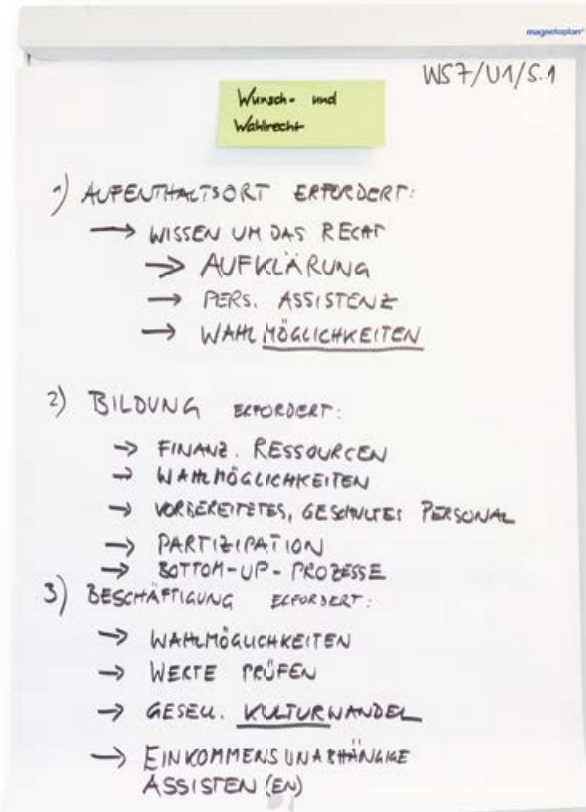 magnetoplan®
WS7/U1/S.1
Wunsch- und
Wahlrecht
1) AUFENTHALTSORT ERFORDERT:
→ WISSEN UM DAS RECHT
→ AUFKLÄRUNG
→ PERS. ASSISTENZ
→ WAHLMÖGLICHKEITEN
2) BILDUNG ERFORDERT:
→ FINANZ. RESSOURCEN
→ WAHLMÖGLICHKEITEN
→ VORBEREITETES, GESCHULTES PERSONAL
→ PARTIZIPATION
→ BOTTOM-UP-PROZESSE
3) BESCHÄFTIGUNG ERFORDERT:
→ WAHLMÖGLICHKEITEN
→ WERTE PRÜFEN
→ GESELL. KULTURWANDEL
→ EINKOMMENSUNABHÄNGIGE
ASSISTEN(EN)